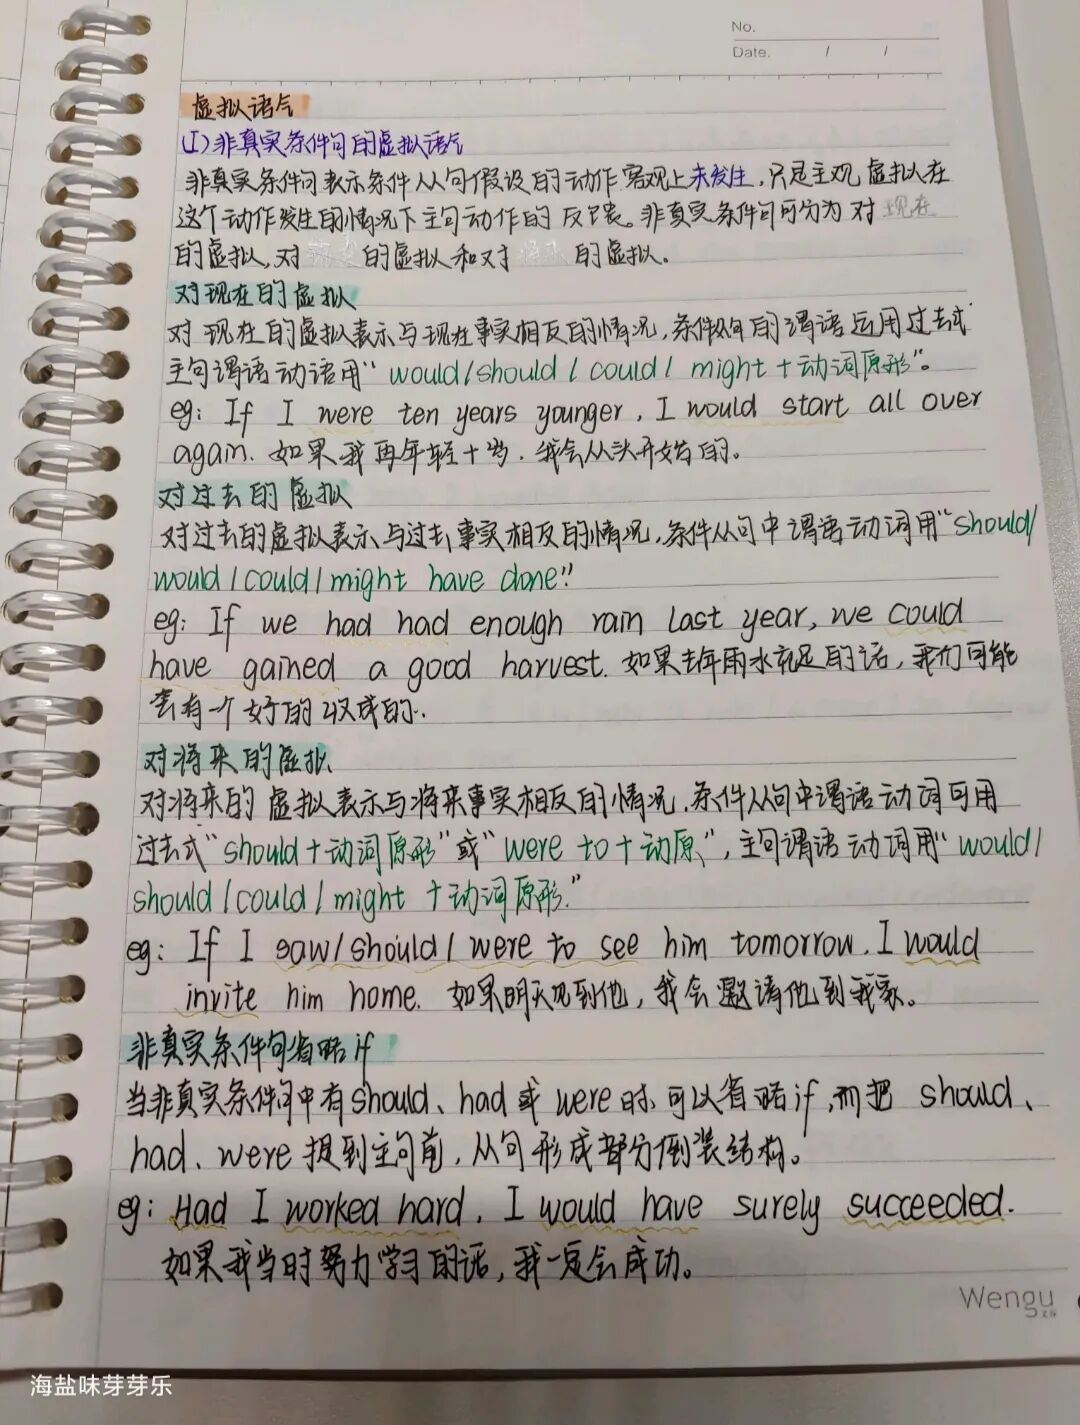 No.
Date. / /
虚拟语气
(1)非真实条件句的虚拟语气
非真实条件句表示条件从句假设的动作客观上未发生,只是主观虚拟在
这个动作发生的情况下主句动作的反应。非真实条件句可分为对现在
的虚拟,对 的虚拟和对将来的虚拟。
对现在的虚拟
对现在的虚拟表示与现在事实相反的情况,条件从句的谓语运用过去式
主句谓语动语用“would/should/could/might+动词原形”。
eg: If I were ten years younger, I would start all over
again. 如果我再年轻十岁,我会从头开始的。
对过去的虚拟
对过去的虚拟表示与过去事实相反的情况,条件从句中谓语动词用“should/
would/could/might have done”
eg: If we had had enough rain last year, we could
have gained a good harvest. 如果去年雨水充足的话,我们可能
会有一个好的收成的.
对将来的虚拟
对将来的虚拟表示与将来事实相反的情况,条件从句中谓语动词可用
过去式“should+动词原形”或“were to+动原”,主句谓语动词用“would/
should/could/might +动词原形.”
eg: If I saw/should/were to see him tomorrow, I would
invite him home. 如果明天见到他,我会邀请他到我家。
非真实条件句省略if
当非真实条件句中有should、had或were时,可以省略if,而把should、
had、were提到主句前,从句形成部分倒装结构。
eg: Had I worked hard, I would have surely succeeded.
如果我当时努力学习的话,我一定会成功。
Wengu
海盐味芽芽乐